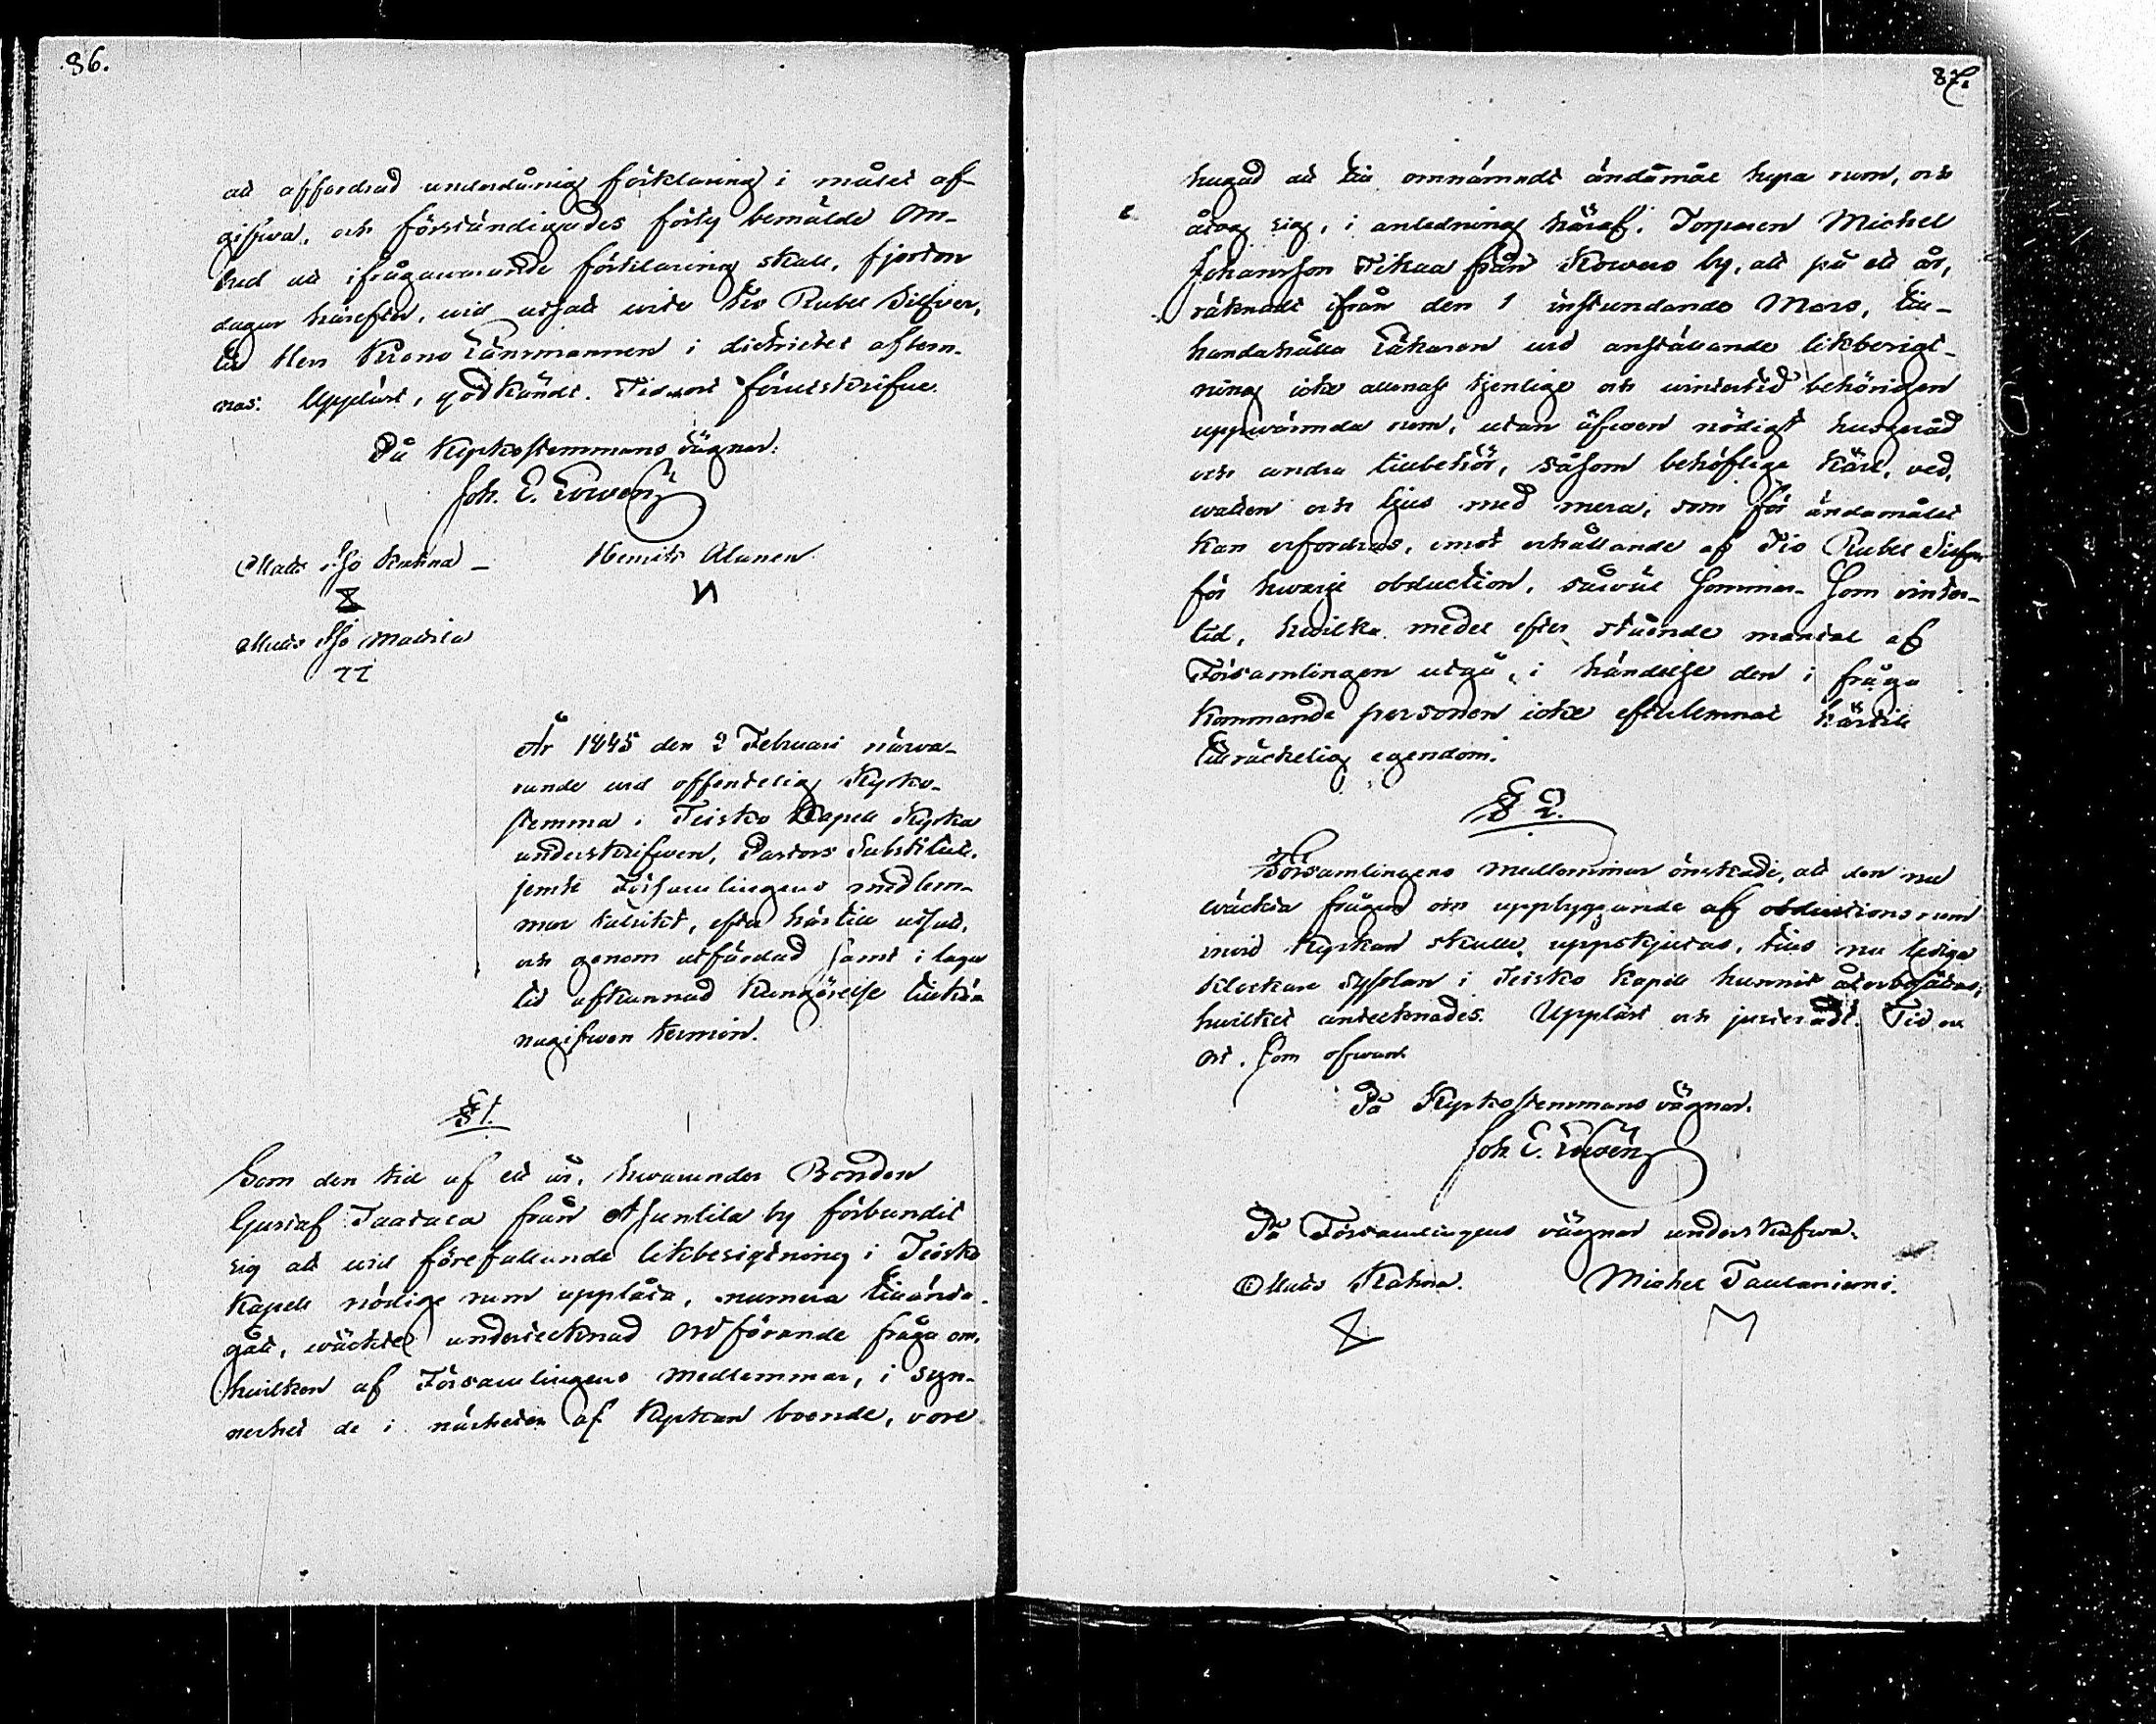 86.
att affordrad underdånig förklaring i målet af-
gifwa, och förständigades förty bemälde Om-
bud att ifrågawarande förklaring skall, fjorton
dagar härefter, wid utsatt wite Tio Rubel Silfwer,
till Herr Krono Länsmannen i districtet aflem-
nas. Uppläst, godkändt. Tid och ort förutskrifne.
På Kyrkostemmans vägnar:
Joh. E. Lowén
Matts Katina - Henrik Alanen
Matts Mattila
År 1845 den 2 Februari närwa-
rande wid offentelig Kyrko-
stemma i Teisko Kapell Kyrka
underskrifwen, Pastors Substitut,
jemte Församlingens medlem-
mar talrikt, efter härtill utsatt,
och genom utfärdad samt i laga
tid afkunnad Kungörelse tillkän-
nagifwen termin.
§ 1.
Som den tid af ett år, hwarunder Bonden
Gustaf Taatala från Asuntila by förbundit
sig att wid förefallande likbesigtning i Teisko
Kapell nödige rum upplåta, numera tillända-
gått, wäckte undertecknad Ordförande fråga om,
hwilken af Församlingens medlemmar, i syn-
nerhet de i närheten af Kyrkan boende, vore
87.
hugad att till omnämndt ändamål hyra rum, och
åtog sig, i anledning häraf, Torparen Michel
Johansson Tikka från Kowero by, att på ett år,
räknadt ifrån den 1 instundande Mars, till-
handahålla Läkaren wid anställande likbesigt-
ning icke allenast tjenlige och wintertid behörigen
uppwärmda rum, utan äfwen nödigt husgeråd
och andra tillbehör, såsom behöflige kärl, ved,
watten och ljus med mera, som för ändamålet
kan erfordras, emot erhållande af Tio Rubel Silfwer
för hwarje obduction, såwäl Sommar- som vinter-
tid, hwilka medel efter stående mantal af
Församlingen utgå, i händelse den i fråga
kommande personen icke efterlemnat härtill
tillräckelig egendom.
§ 2.
Församlingens medlemmar önskade, att den nu
wäckta frågan om uppbyggande af obductionsrum
inwid Kyrkan skulle uppskjutas, tills nu lediga
klockare sysslan i Teisko Kapell hunnit återbesättas,
hwilket antecknades. Uppläst och justeradt. Tid och
Ort, som ofwan.
På Kyrkostemmans vägnar.
Joh. E. Lowén
På Församlingens vägnar underskrifwa.
Matts Katina. Michel Taulaniemi.